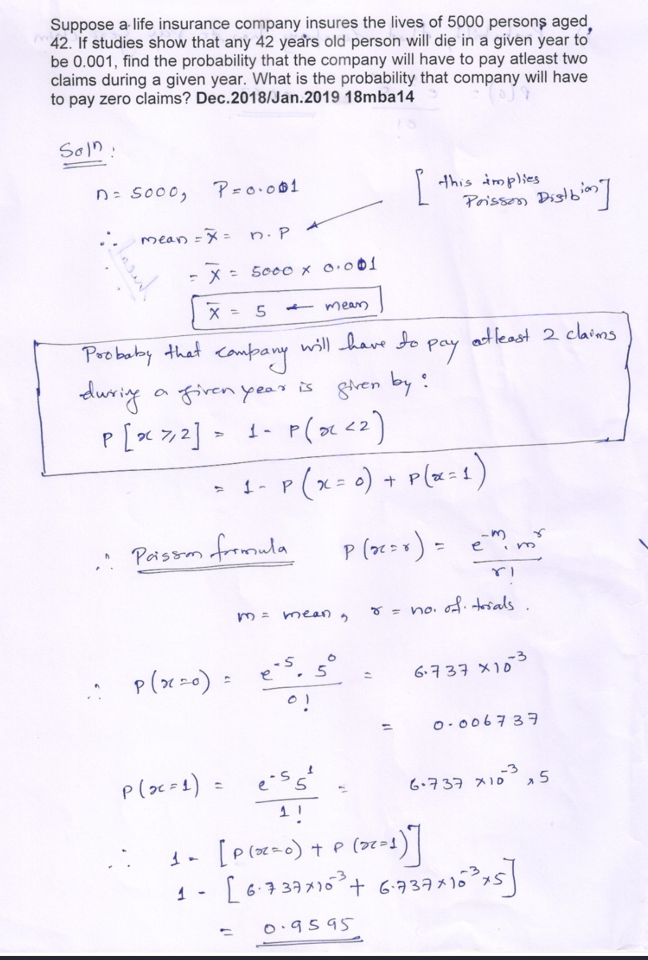 Suppose a life insurance company insures the lives of 5000 persons aged
42. If studies show that any 42 years old person will die in a given year to
be 0.001, find the probability that the company will have to pay atleast two
claims during a given year. What is the probability that company will have
to pay zero claims? Dec.2018/Jan.2019 18mba14
Solⁿ:
n = 5000, P = 0.001
[this implies
Poisson Distbⁱᵒⁿ]
∴ mean = x̄ = n.p
= x̄ = 5000 × 0.001
x̄ = 5 ← mean
Probaby that company will have to pay atleast 2 claims
during a given year is given by:
P[x ≥ 2] = 1 - P(x < 2)
= 1 - P(x = 0) + P(x = 1)
∴ Poisson formula P(x = r) = e⁻ᵐ . mʳ / r!
m = mean, r = no. of. trials.
∴ P(x=0) = e⁻⁵ . 5⁰ / 0! = 6.737 × 10⁻³
= 0.006737
P(x=1) = e⁻⁵ 5¹ / 1! = 6.737 × 10⁻³ × 5
∴ 1 - [P(x=0) + P(x=1)]
1 - [6.737×10⁻³ + 6.737×10⁻³×5]
= 0.9595